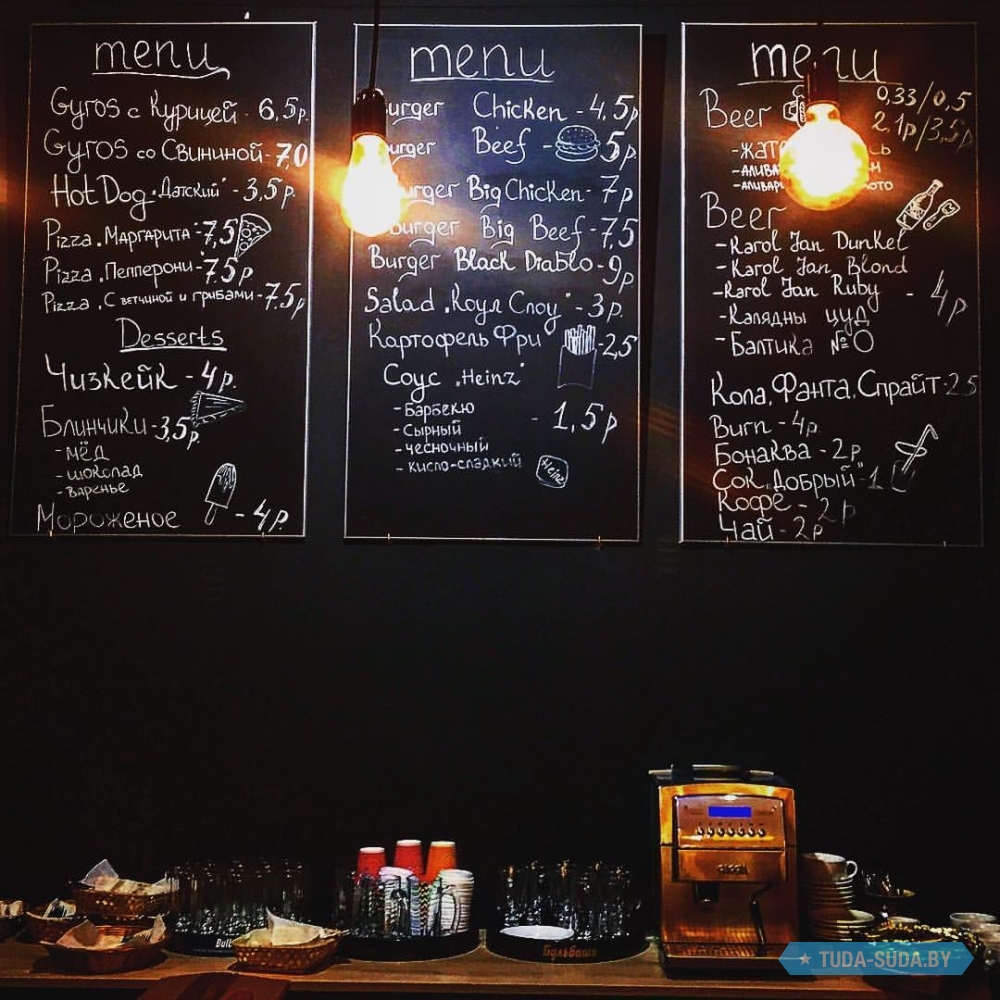 menu
Gyros с Курицей - 6,5р.
Gyros со Свининой - 7,0
Hot Dog "Датский" - 3,5р
Pizza "Маргарита" - 7,5
Pizza "Пепперони" - 7.5р
Pizza "С ветчиной и грибами - 7.5р
Desserts
Чизкейк - 4р.
Блинчики - 3,5р.
- мёд
- шоколад
- варенье
Мороженое - 4р.
menu
urger Chicken - 4,5р
urger Beef - 5р.
urger Big Chicken - 7р
urger Big Beef - 7,5
Burger Black Diablo - 9р
Salad "Коул Слоу" - 3р.
Картофель Фри - 2,5
Соус "Heinz"
- Барбекю
- Сырный - 1,5р
- чесночный
- кисло-сладкий
Heinz
menu
Beer 0,33/0,5
2,1р/3,5р
Beer
- Karol Jan Dunkel
- Karol Jan Blond
- Karol Jan Ruby - 4р
- Калядны цуд
- Балтика №0
Кола, Фанта, Спрайт - 2,5
Burn - 4р.
Бонаква - 2р
Сок "Добрый" - 1
Кофе - 2р
Чай - 2р
Бульбашъ
TUDA-SUDA.BY